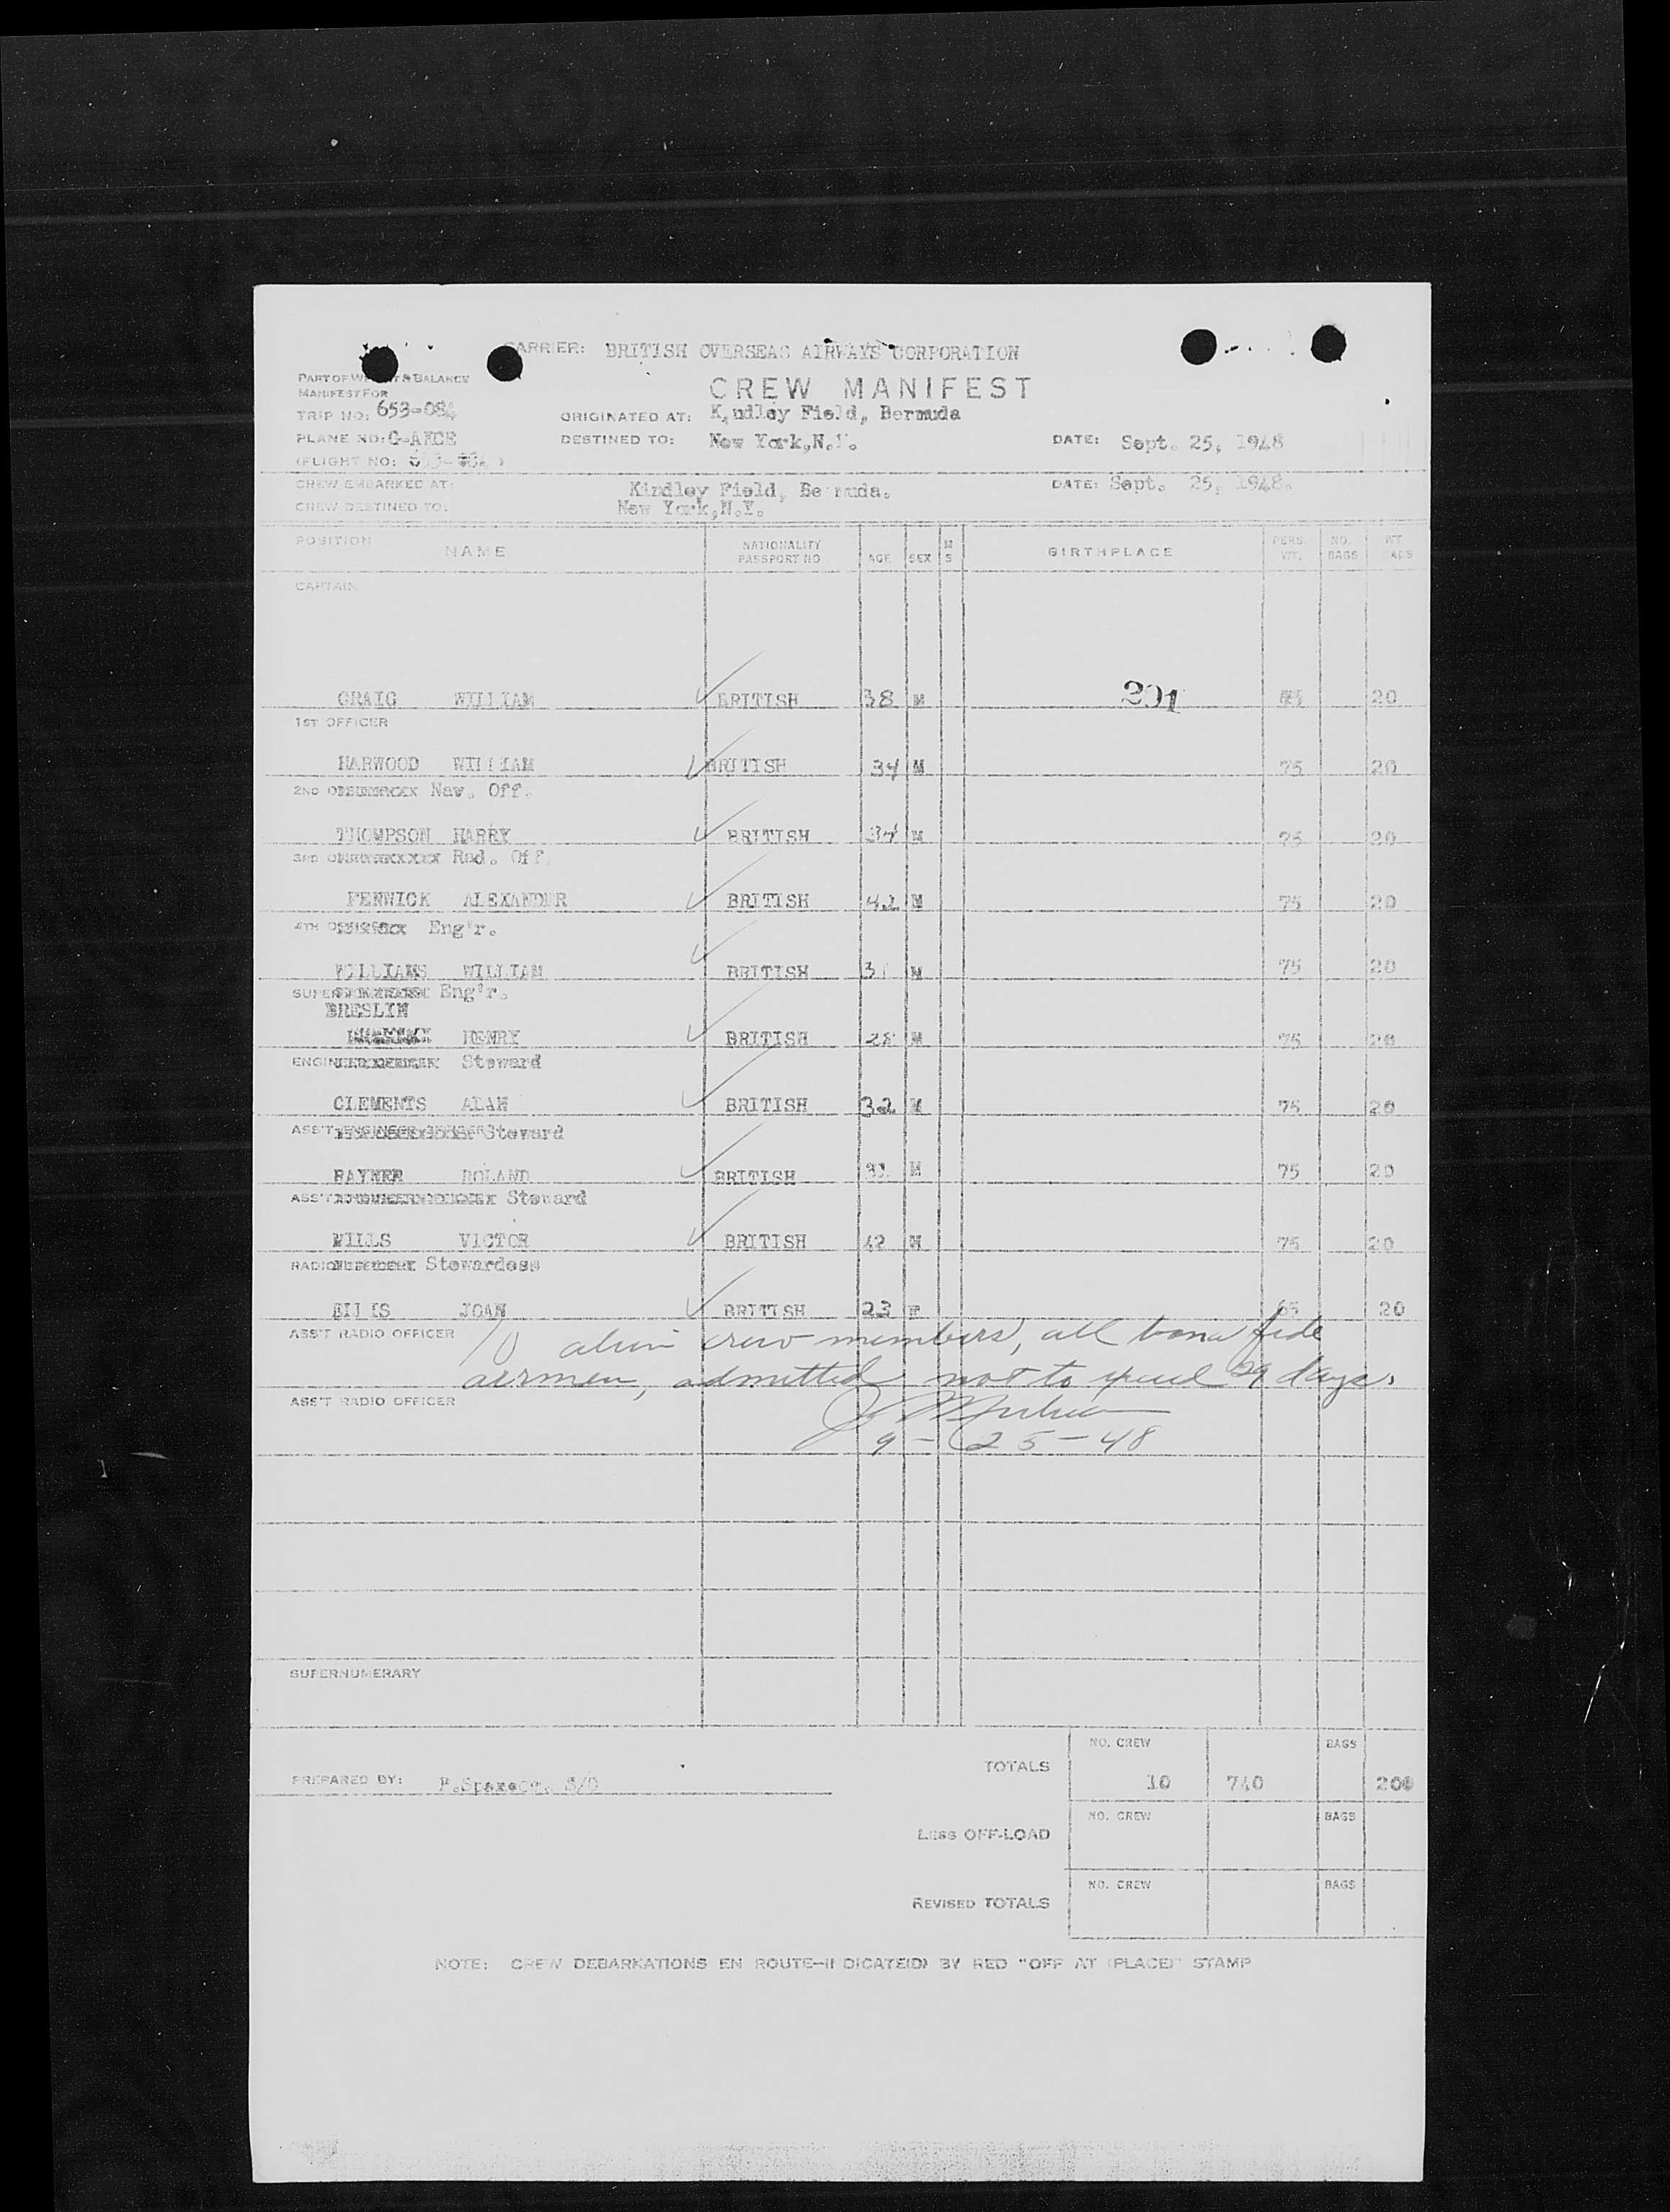 CARRIER: BRITISH OVERSEAS AIRWAYS CORPORATION
PART OF WEIGHT & BALANCE
MANIFEST FOR
CREW MANIFEST
TRIP NO: 653-084 ORIGINATED AT: K,ndley Field, Bermuda
PLANE NO: DESTINED TO: New York,N.Y. DATE: Sept. 25, 1948
(FLIGHT NO:
CREW EMBARKED AT: Kindley Field, Bermuda. DATE: Sept. 25, 1948.
CREW DESTINED TO: New York,N.Y.
POSITION NAME NATIONALITY PASSPORT NO AGE SEX M S BIRTHPLACE PERS. WT. NO. BAGS WT BAGS
CAPTAIN
CRAIG WILLIAM BRITISH 38 M 201 20
1ST OFFICER
HARWOOD WILLIAM BRITISH 34 M 75 20
2ND Nav. Off.
THOMPSON HARRY BRITISH 34 M 75 20
3RD Rad. Off.
FENWICK ALEXANDER BRITISH 42 M 75 20
4TH OFFICER Eng'r.
WILLIAMS WILLIAM BRITISH M 75 20
Eng'r.
BRESLIN
HENRY BRITISH 28 M 75 20
Steward
CLEMENTS ALAN BRITISH 32 M 75 20
ASS'T ENGINEER OFFICER Steward
RAYNER ROLAND BRITISH M 75 20
ASS'T Steward
MILLS VICTOR BRITISH 42 M 75 20
RADIO Stewardess
ELLIS JOAN BRITISH 23 F 65 20
ASS'T RADIO OFFICER
10 alien crew members, all bona fide
airmen, admitted not to exceed 29 days.
ASS'T RADIO OFFICER
9-25-48
SUPERNUMERARY
TOTALS NO. CREW 10 740 BAGS 200
PREPARED BY:
LESS OFF-LOAD NO. CREW BAGS
REVISED TOTALS NO. CREW BAGS
NOTE: CREW DEBARKATIONS EN ROUTE—INDICATE(D) BY RED "OFF AT (PLACE)" STAMP